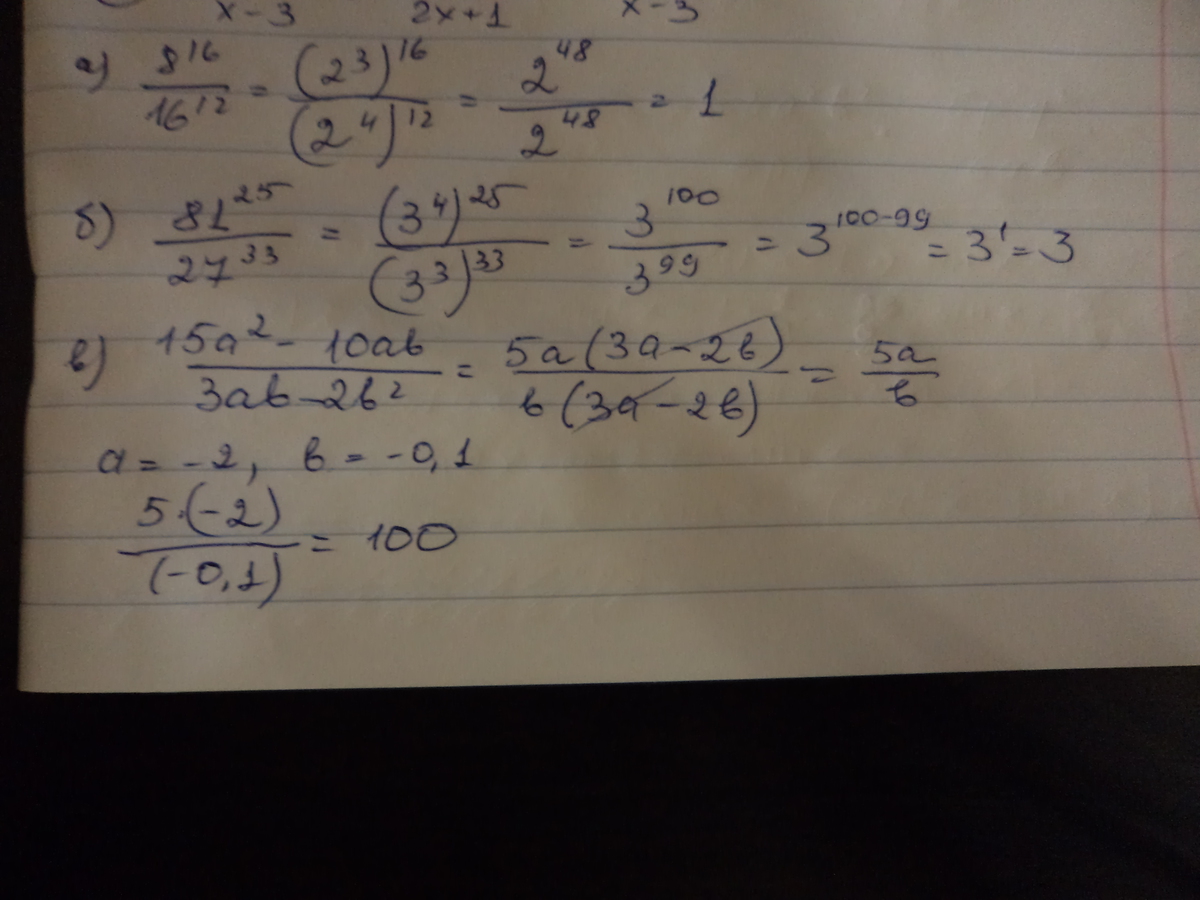 x-3 2x+1 x-3
а) 8^16/16^12 = (2^3)^16/(2^4)^12 = 2^48/2^48 = 1
б) 81^25/27^33 = (3^4)^25/(3^3)^33 = 3^100/3^99 = 3^100-99 = 3^1 = 3
в) 15a^2 - 10ab/3ab - 2b^2 = 5a(3a - 2b)/b(3a - 2b) = 5a/b
a = -2, b = -0,1
5·(-2)/(-0,1) = 100